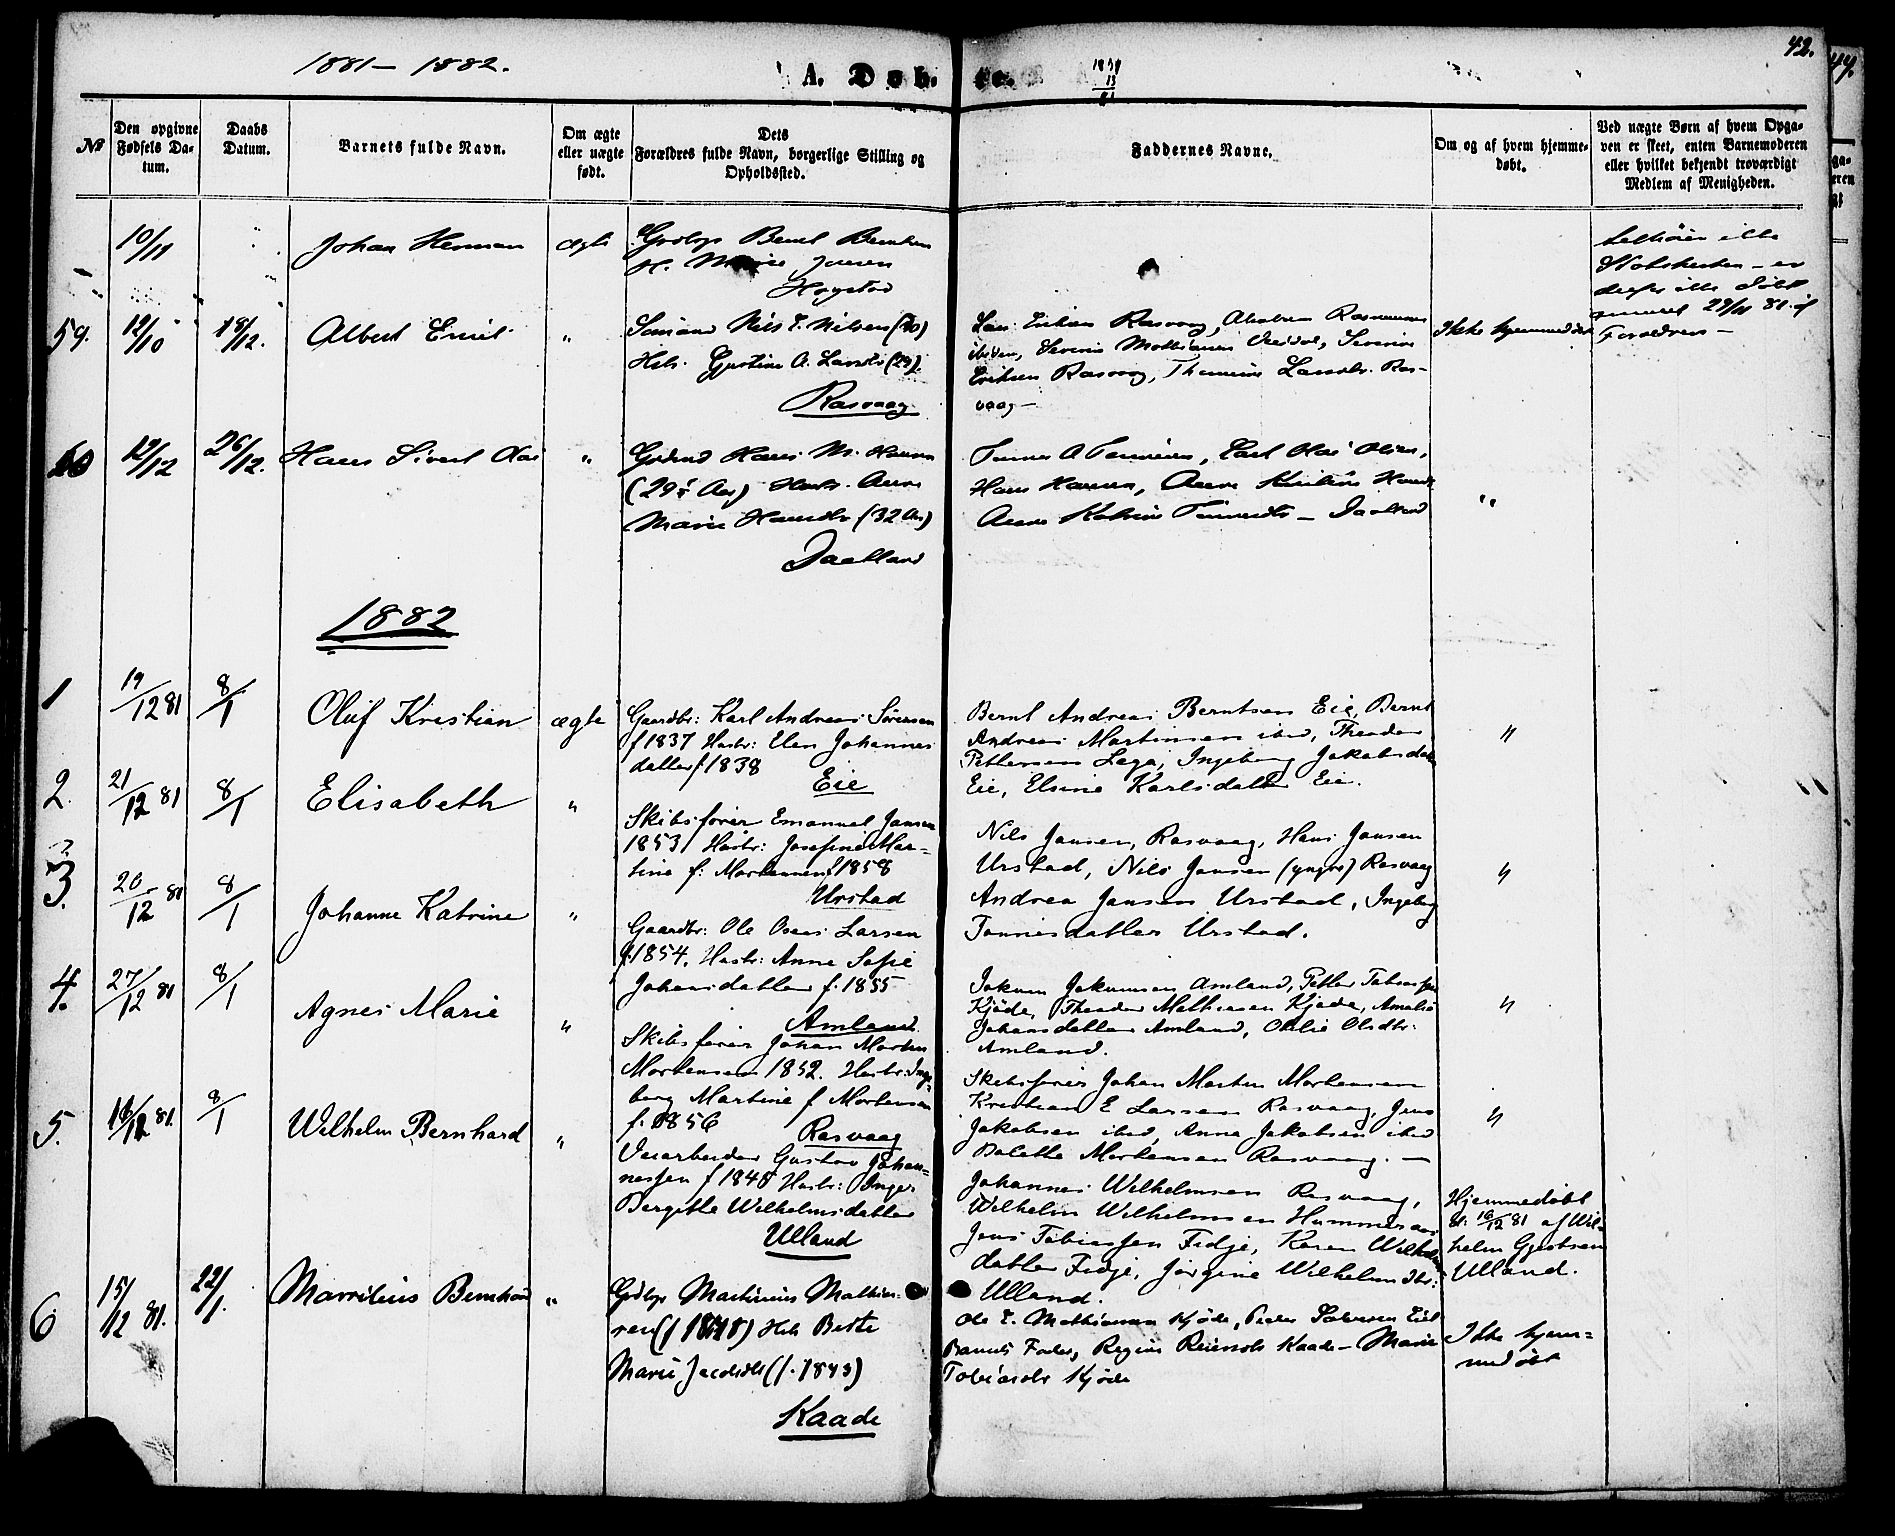 1881 – 1882.
A. Døb
42.
No
Den opgivne Fødsels Datum.
Daabs Datum.
Barnets fulde Navn.
Om ægte eller uægte født.
Dets Forældres fulde Navn, borgerlige Stilling og Opholdssted.
Faddernes Navne.
Om og af hvem hjemmedøbt.
Ved uægte Børn af hvem Opgaven er skeet, enten Barnemoderen eller hvilket bekjendt troværdigt Medlem af Menigheden.
10/11
Johan Herman
ægte
Bernt
H. Marie
Høgstad
Statskirken – er
59.
12/10
18/12.
Albert Emil
"
Sømand Nils T. Nilsen (30)
Hstr. Gjertine A. Larsdtr (29).
Rasvaag
Lars Eriksen Rasvaag,
Eriksen Rasvaag,
vaag –
Ikke hjemmedøbt
Forældren –
60
12/12
26/12.
Hans Sivert Olai
"
Hans M. Hansen
(29 Aar) Hustr. Anne
Marie Hansdtr (32 Aar)
Jaatland
Carl Olai Olsen,
Hans Hansen, Anne
Anne Katrine – Jaatland
"
1882
1
19/12 81
8/1
Oluf Kristian
ægte
Gaardbr: Karl Andreas Sørensen
f 1837 Hustr: Elen Johannes
datter f 1838
Eie
Bernt Andreas Berntsen Eie, Bernt
Andreas Martinsen ibid, Theodor
Pettersen Lega, Ingeborg Jakobsdatter
Eie, Elsine Karlsdatter Eie.
"
2.
21/12 81
8/1
Elisabeth
"
Skibsfører Emanuel Jansen
1853 Hustr: Josefine Mar-
tine f: Mortensen f 1858
Urstad
Nils Jansen, Rasvaag, Hans Jansen
Urstad, Nils Jansen (yngre) Rasvaag
Andrea Jansen Urstad, Ingeborg
Tønnesdatter Urstad.
"
3.
20/12 81
8/1
Johanne Katrine
"
Gaardbr: Ole Oseas Larsen
f. 1854. Hustr: Anne Sofie
Johansdatter f. 1855
Amland.
Jokum Jokumsen Amland, Petter
Kjøde, Theodor Mathiasen Kjøde, Amalie
Johansdatter Amland, Otilie Olsdtr:
Amland.
"
4.
27/12 81
8/1
Agnes Marie
"
Skibsfører Johan Morten
Mortensen 1852. Hustr: Inge-
borg Martine f Mortensen
f. 1856
Rasvaag
Skibsfører Johan Morten Mortensen
Kristian E Larsen Rasvaag, Jens
Jakobsen ibid, Anna Jakobsen ibid
Bolette Mortensen Rasvaag. –
"
5.
16/12 81.
8/1
Wilhelm Bernhard
"
Veiarbeider Gustav Johan-
nessen f 1848 Hustr: Inger
Bergitte Wilhelmsdatter
Ulland
Johannes Wilhelmsen Rasvaag,
Wilhelm Wilhelmsen Hummeraas
Jens Tobiassen Fidje, Karen Wilhelms
datter Fidje, Jørgine Wilhelmsdtr:
Ulland.
Hjemmedøbt
16/12 81 af Wil-
helm Gjertsen
Ulland.
6
15/12 81.
22/1.
"
Martinius Mathias-
sen (f 1848) Hstr Berte
Marie Jacobsdtr (f. 1843)
Kaade
Ole T. Mathiassen Kjøde, Peder
Barnets Fader, Regine Kaade – Marie
Tobiasdtr Kjøde
Ikke hjem-
medøbt